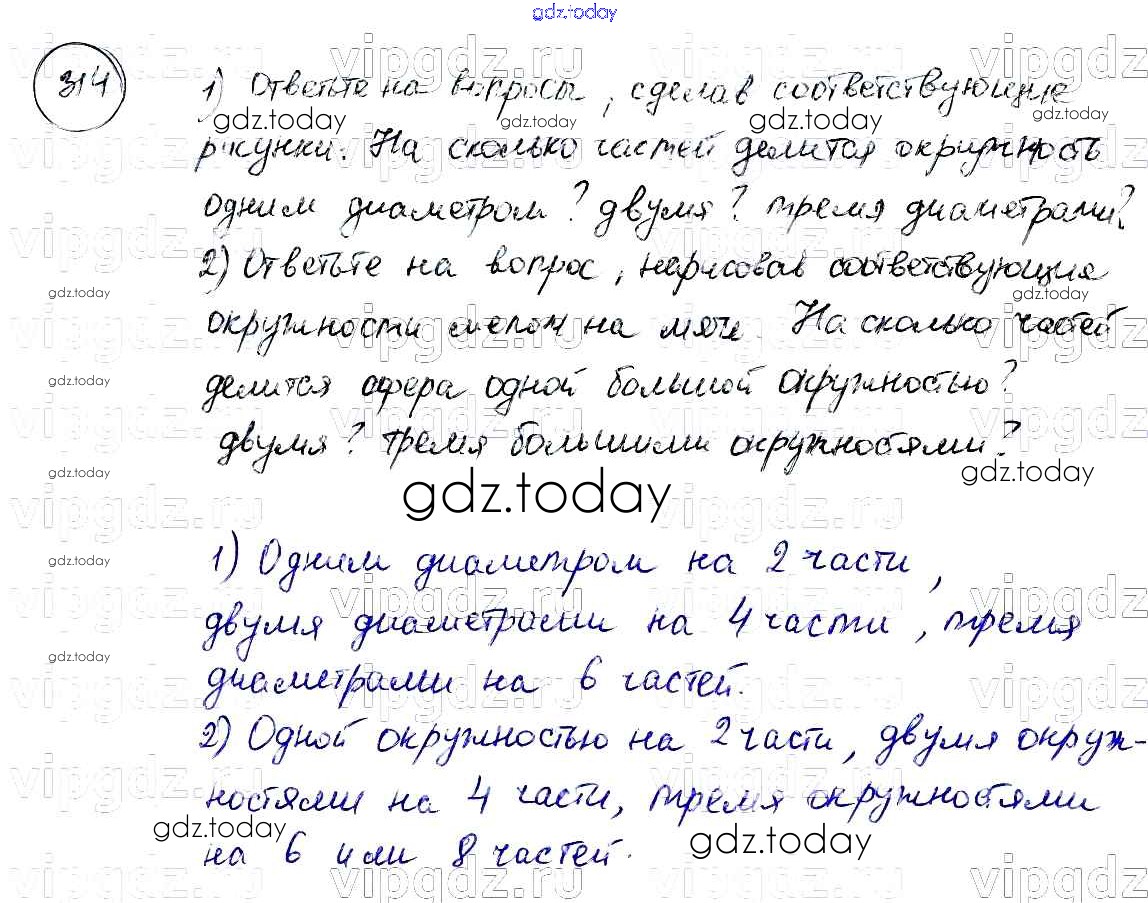 gdz.today
314
1) Ответьте на вопросы, сделав соответствующие
рисунки. На сколько частей делится окружность
одним диаметром? двумя? тремя диаметрами?
2) Ответьте на вопрос, нарисовав соответствующие
окружности мелом на мяче. На сколько частей
делится сфера одной большой окружностью?
двумя? тремя большими окружностями?
gdz.today
1) Одним диаметром на 2 части,
двумя диаметрами на 4 части, тремя
диаметрами на 6 частей.
2) Одной окружностью на 2 части, двумя окруж-
ностями на 4 части, тремя окружностями
на 6 или 8 частей.